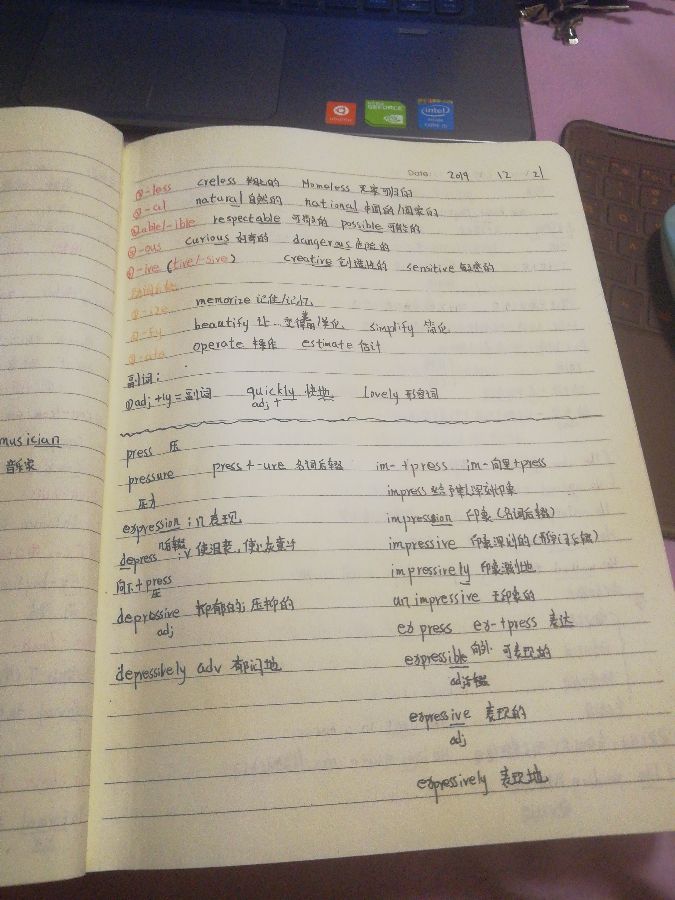 intel
Date: 2019 / 12 / 21
-less creless 粗心的 Homeless 无家可归的
-al natural 自然的 national 中国的/国家的
able/-ible respectable 可敬的 possible 可能的
-ous curious 好奇的 dangerous 危险的
-ive (tive/-sive) creative 创造性的 sensitive 敏感的
动词后缀
-ize memorize 记住/记忆
-fy beautify 让…变得美丽/美化 simplify 简化
-ate operate 操作 estimate 估计
副词:
①adj+ly=副词 quickly 快地 lovely 形容词
adj +
musician
音乐家
press 压
pressure press+-ure 名词后缀
压力
expression : n 表现
n后缀
depress : v 使沮丧,使
向下+press
压
depressive 抑郁的; 压抑的
adj
depressively adv 郁闷地
im-+press im-向里+press
impress 给予某人深刻印象
impression 印象(名词后缀)
impressive 印象深刻的(形容词后缀)
impressively 印象深刻地
unimpressive 无印象的
express ex-+press 表达
向外
expressible 可表现的
adj后缀
expressive 表现的
adj
expressively 表现地